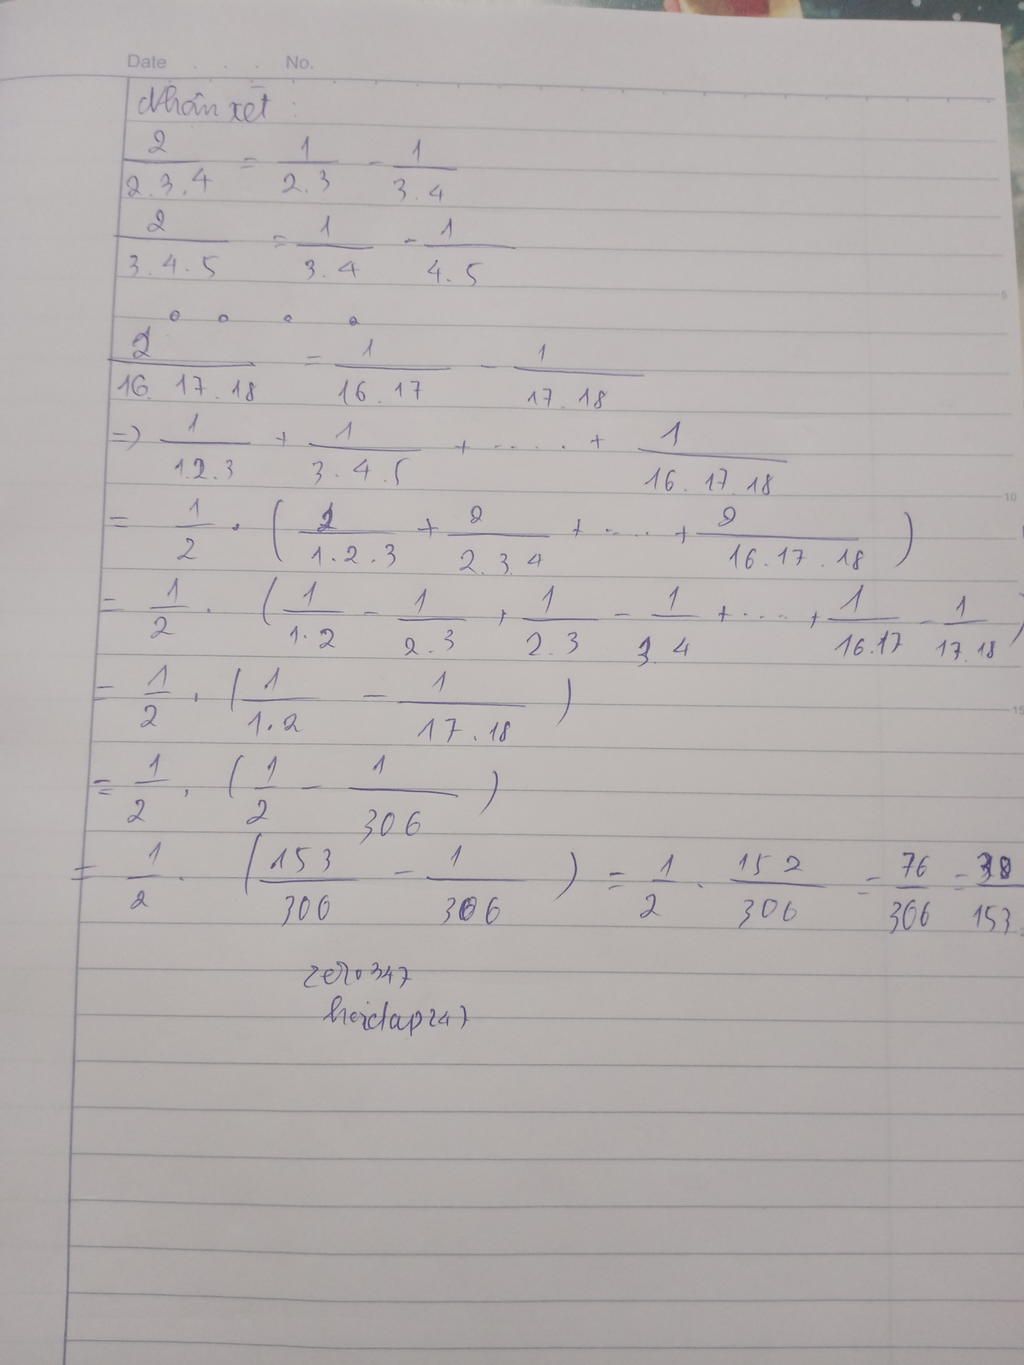 Date . . . No.
Nhận xét :
2/2.3.4 = 1/2.3 - 1/3.4
2/3.4.5 = 1/3.4 - 1/4.5
. . . .
2/16.17.18 = 1/16.17 - 1/17.18
=> 1/1.2.3 + 1/3.4.5 + ..... + 1/16.17.18
= 1/2 . ( 2/1.2.3 + 2/2.3.4 + ..... + 2/16.17.18 )
= 1/2 . ( 1/1.2 - 1/2.3 + 1/2.3 - 1/3.4 + .... + 1/16.17 - 1/17.18 )
= 1/2 . ( 1/1.2 - 1/17.18 )
= 1/2 . ( 1/2 - 1/306 )
= 1/2 . ( 153/306 - 1/306 ) = 1/2 . 152/306 = 76/306 = 38/153
zero347
hoidap247
5
10
15